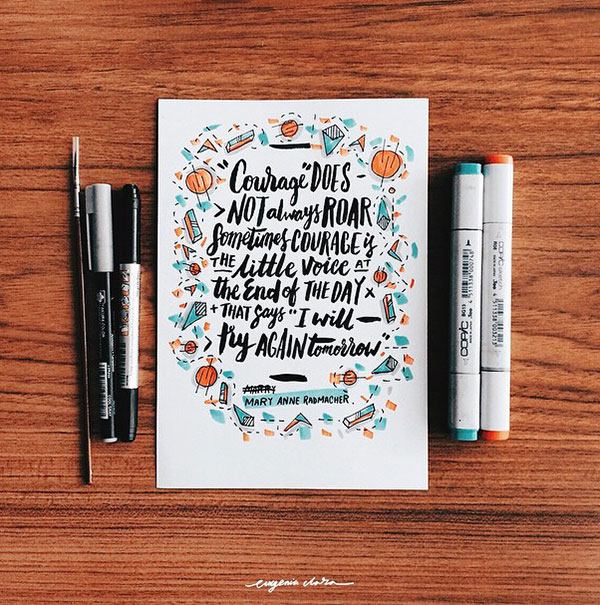 "Courage" DOES
> NOT always ROAR
Sometimes COURAGE is
THE little voice AT
the End of THE DAY x
+ THAT SAYS "I will —
> try AGAIN tomorrow"
MARY ANNE RADMACHER
COPIC
BG13
COPIC
eugenia clara